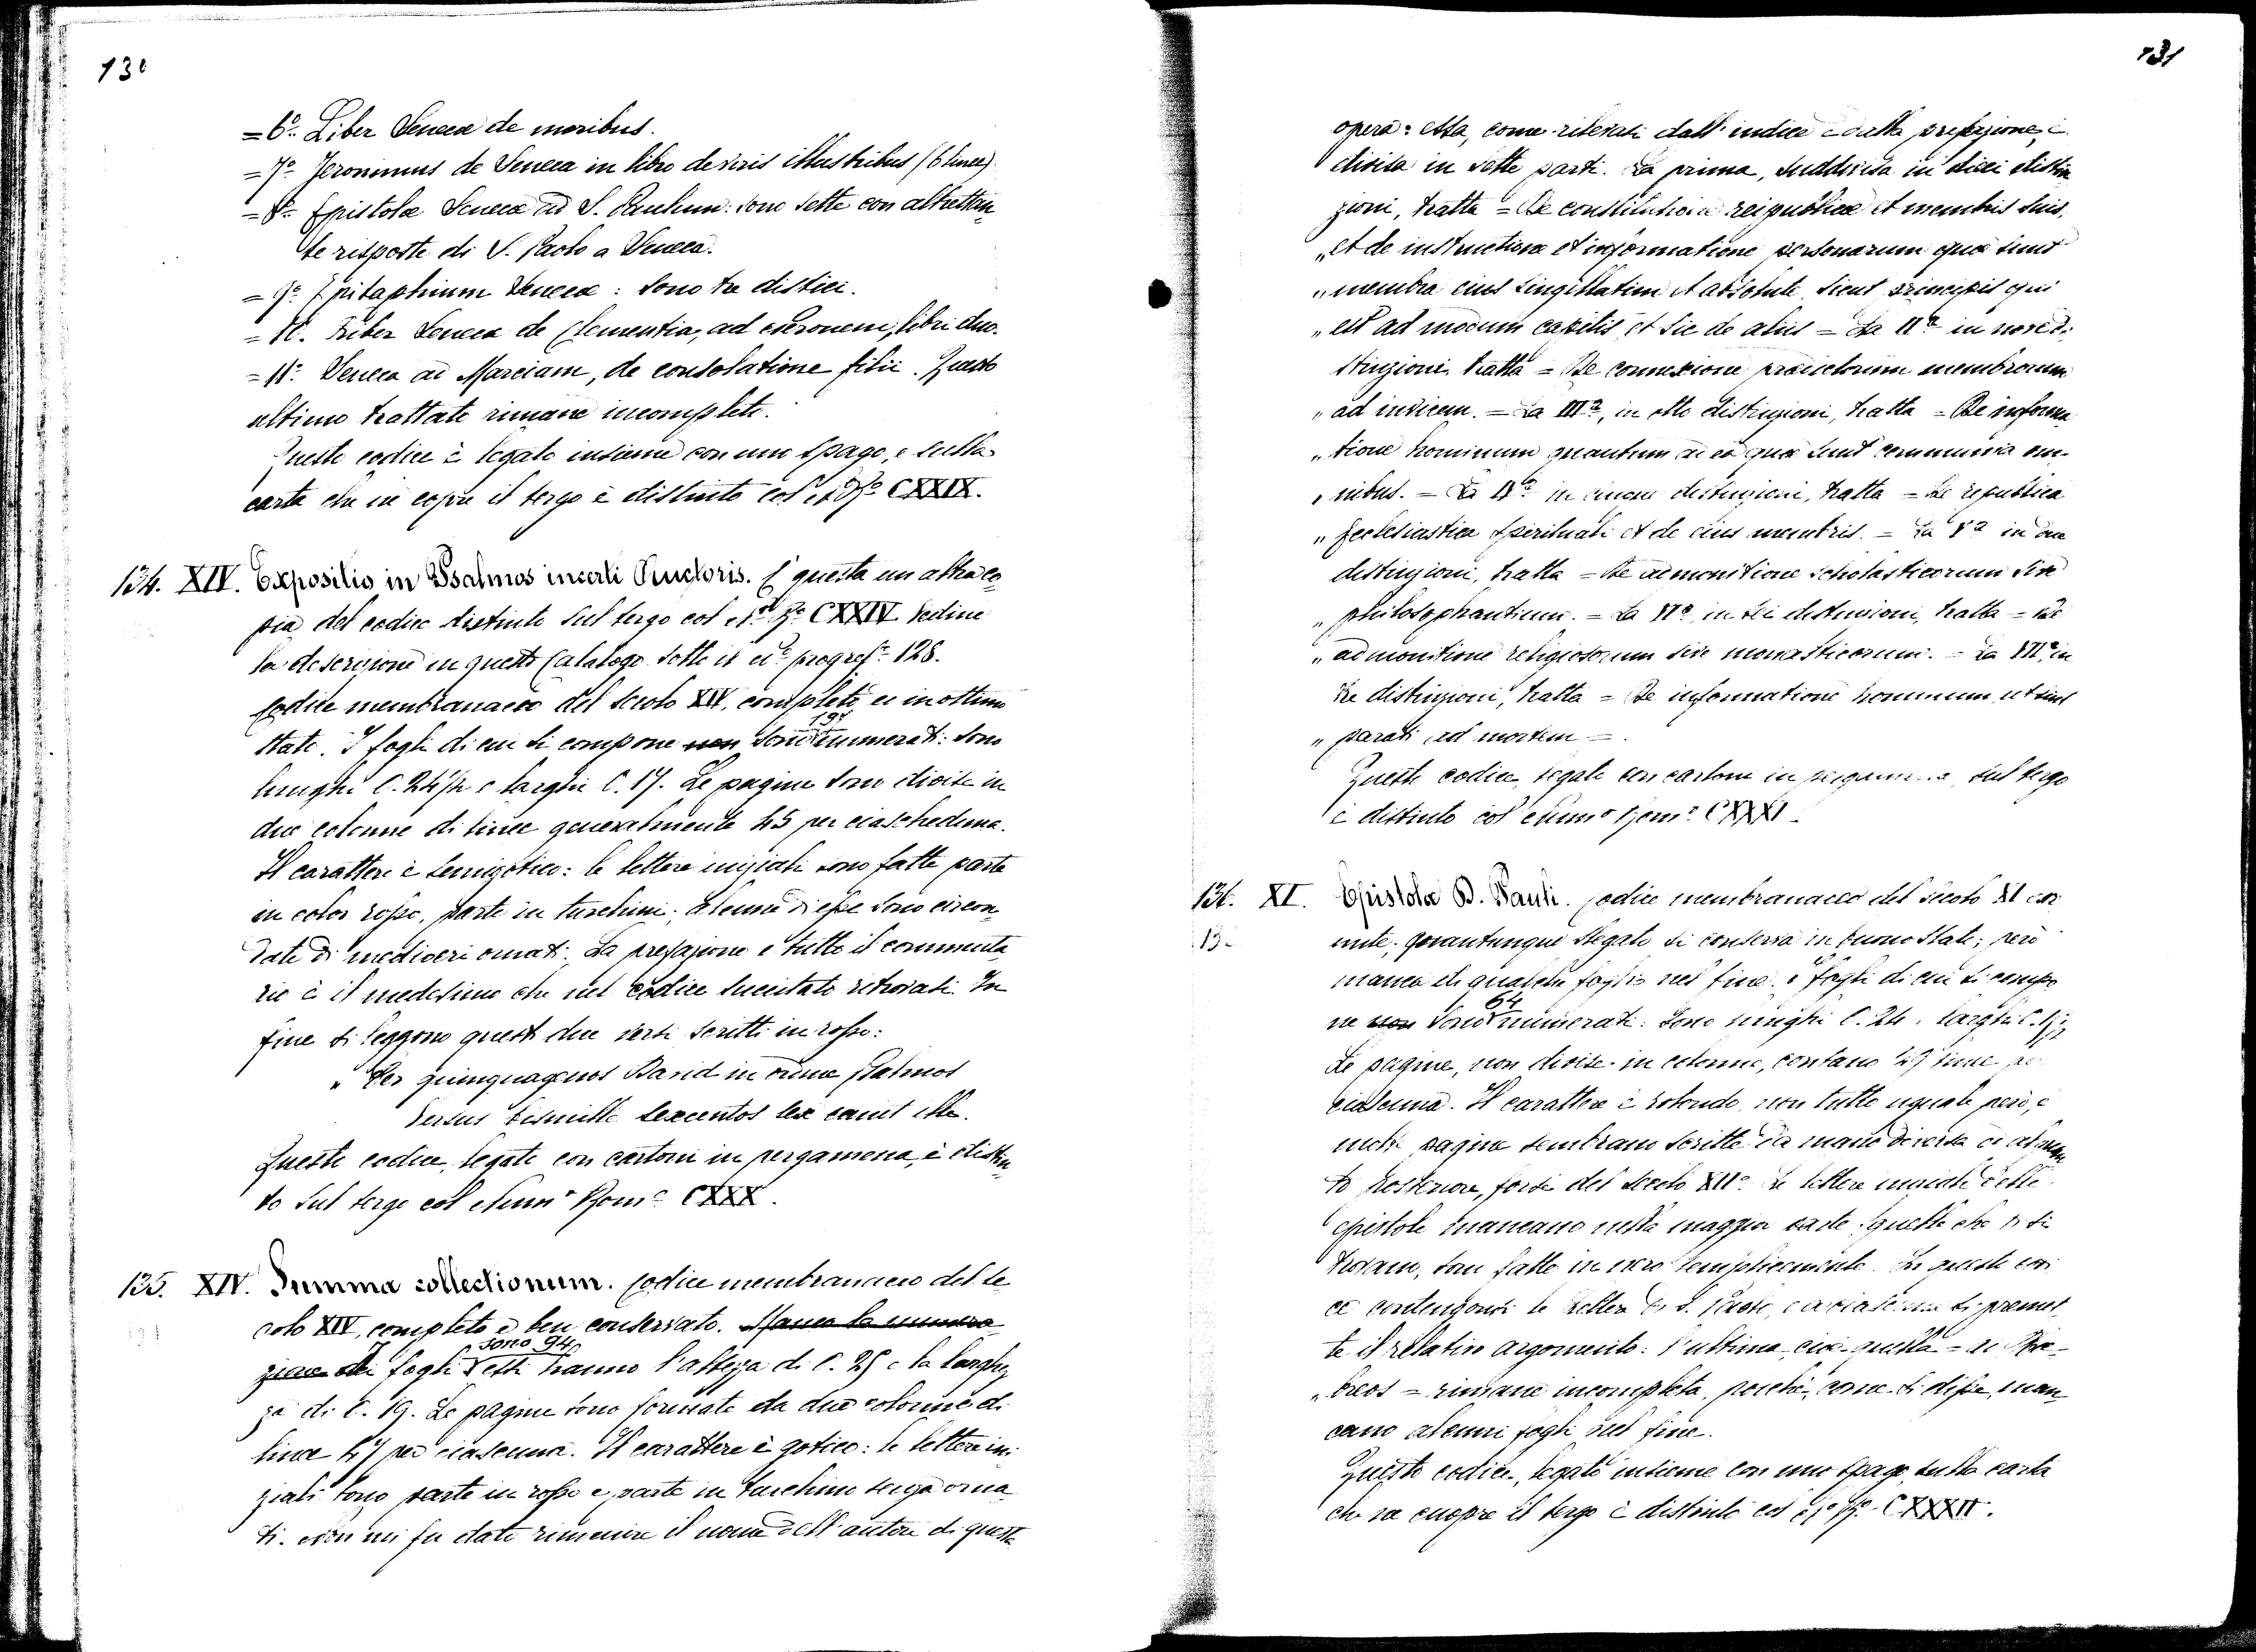 130
= 6.º Liber Senecæ de moribus.
= 7.º Jeronimus de Seneca in libro de viris illustribus (6 linee)
= 8.º Epistolæ Senecæ ad S. Paulum: sono sette con altrettan
te risposte di S. Paolo a Seneca.
= 9.º Epitaphium Senecæ: sono tre distici.
= 10. Liber Senecæ de Clementia, ad Neronem, libri duo.
= 11.º Seneca ad Marciam, de consolatione filii. Questo
ultimo trattato rimane incompleto.
Questo codice è legato insieme con uno spago, e sulla
carta che ne copre il tergo è distinto col N.º R.º CXXIX.
134. XIV. Expositio in Psalmos incerti Auctoris. È questa un altra co
pia del codice distinto sul tergo col N.º R.º CXXIV. Vedine
la descrizione in questo Catalogo sotto il n.º progres.º 128.
Codice membranaceo del secolo XIV, completo ed in ottimo
stato. I fogli di cui si compone non sono 197 numerati: sono
lunghi C. 24½ e larghi C. 17. Le pagine sono divise in
due colonne di linee generalmente 45 per ciascheduna.
Il carattere è semigotico: le lettere iniziali sono fatte parte
in color rosso, parte in turchino; alcune di esse sono circon
date di mediocri ornati. La prefazione e tutto il commenta
rio è il medesimo che nel codice succitato ritrovati. In
fine si leggono questi due versi scritti in rosso:
" Per quinquagenos David in ordine psalmos
Versus bismille sexcentos sex canit ille.
Questo codice, legato con cartoni in pergamena, è distin
to sul tergo col Num.º Rom.º CXXX.
135. XIV. Summa collectionum. Codice membranaceo del se
colo XIV, completo e ben conservato. Manca la numera
zione dei I fogli sono 94 essi hanno l'altezza di C. 25 e la larghez
za di C. 19. Le pagine sono formate da due colonne di
linee 47 per ciascuna. Il carattere è gotico: le lettere ini
ziali sono parte in rosso e parte in turchino senza orna
ti. Non mi fu dato rinvenire il nome dell'autore di questa
131
opera: essa, come rilevasi dall'indice e dalla prefazione, è
divisa in sette parti. La prima, suddivisa in dieci distin
zioni, tratta = De constitutione reipublicæ et membris suis,
" et de instructione et informatione personarum quæ sunt
" membra eius singillatim et absolute sicut principis qui
" est ad modum capitis et sic de aliis = La II.ª in nove di
stinzioni, tratta = De connexione prædictorum membrorum
" ad invicem. = La III.ª, in otto distinzioni, tratta = De informa
" tione hominum quantum ad ea quæ sunt communia om-
" nibus. = La IV.ª in cinque distinzioni, tratta = De republica
" Ecclesiastica spirituali et de eius membris. = La V.ª in due
distinzioni, tratta = De admonitione scholasticorum sive
" philosophantium. = La VI.ª in sei distinzioni, tratta = De
" admonitione religiosorum sive monasticorum. = La VII.ª in
tre distinzioni, tratta = De informatione hominum ut sint
" parati ad mortem =.
Questo codice, legato con cartoni in pergamena, sul tergo
è distinto col Num.º Rom.º CXXXI.
136. XI. Epistolæ B. Pauli. Codice membranaceo del secolo XI
quantunque slegato si conserva in buono stato; però
manca di qualche foglio nel fine. I fogli di cui si compo
ne non sono 64 numerati: sono lunghi C. 24 larghi C.
Le pagine, non divise in colonne, contano 29 linee per
ciascuna. Il carattere è rotondo non tutto uguale però, e
molte pagine sembrano scritte da mano diversa ed alquan
to posteriore, forse del secolo XII.º Le lettere iniziali delle
epistole mancano nella maggior parte: quelle che vi si
trovano, son fatte in nero semplicemente. In questo codi
ce contengonsi le lettere di S. Paolo, e a ciascuna si premet
te il relativo argomento: l'ultima, cioè quella = ad Hæ-
" breos = rimane incompleta, perchè, come si disse, man
cano alcuni fogli nel fine.
Questo codice, legato insieme con uno spago, sulla carta
che ne cuopre il tergo è distinto col N.º R.º CXXXII.